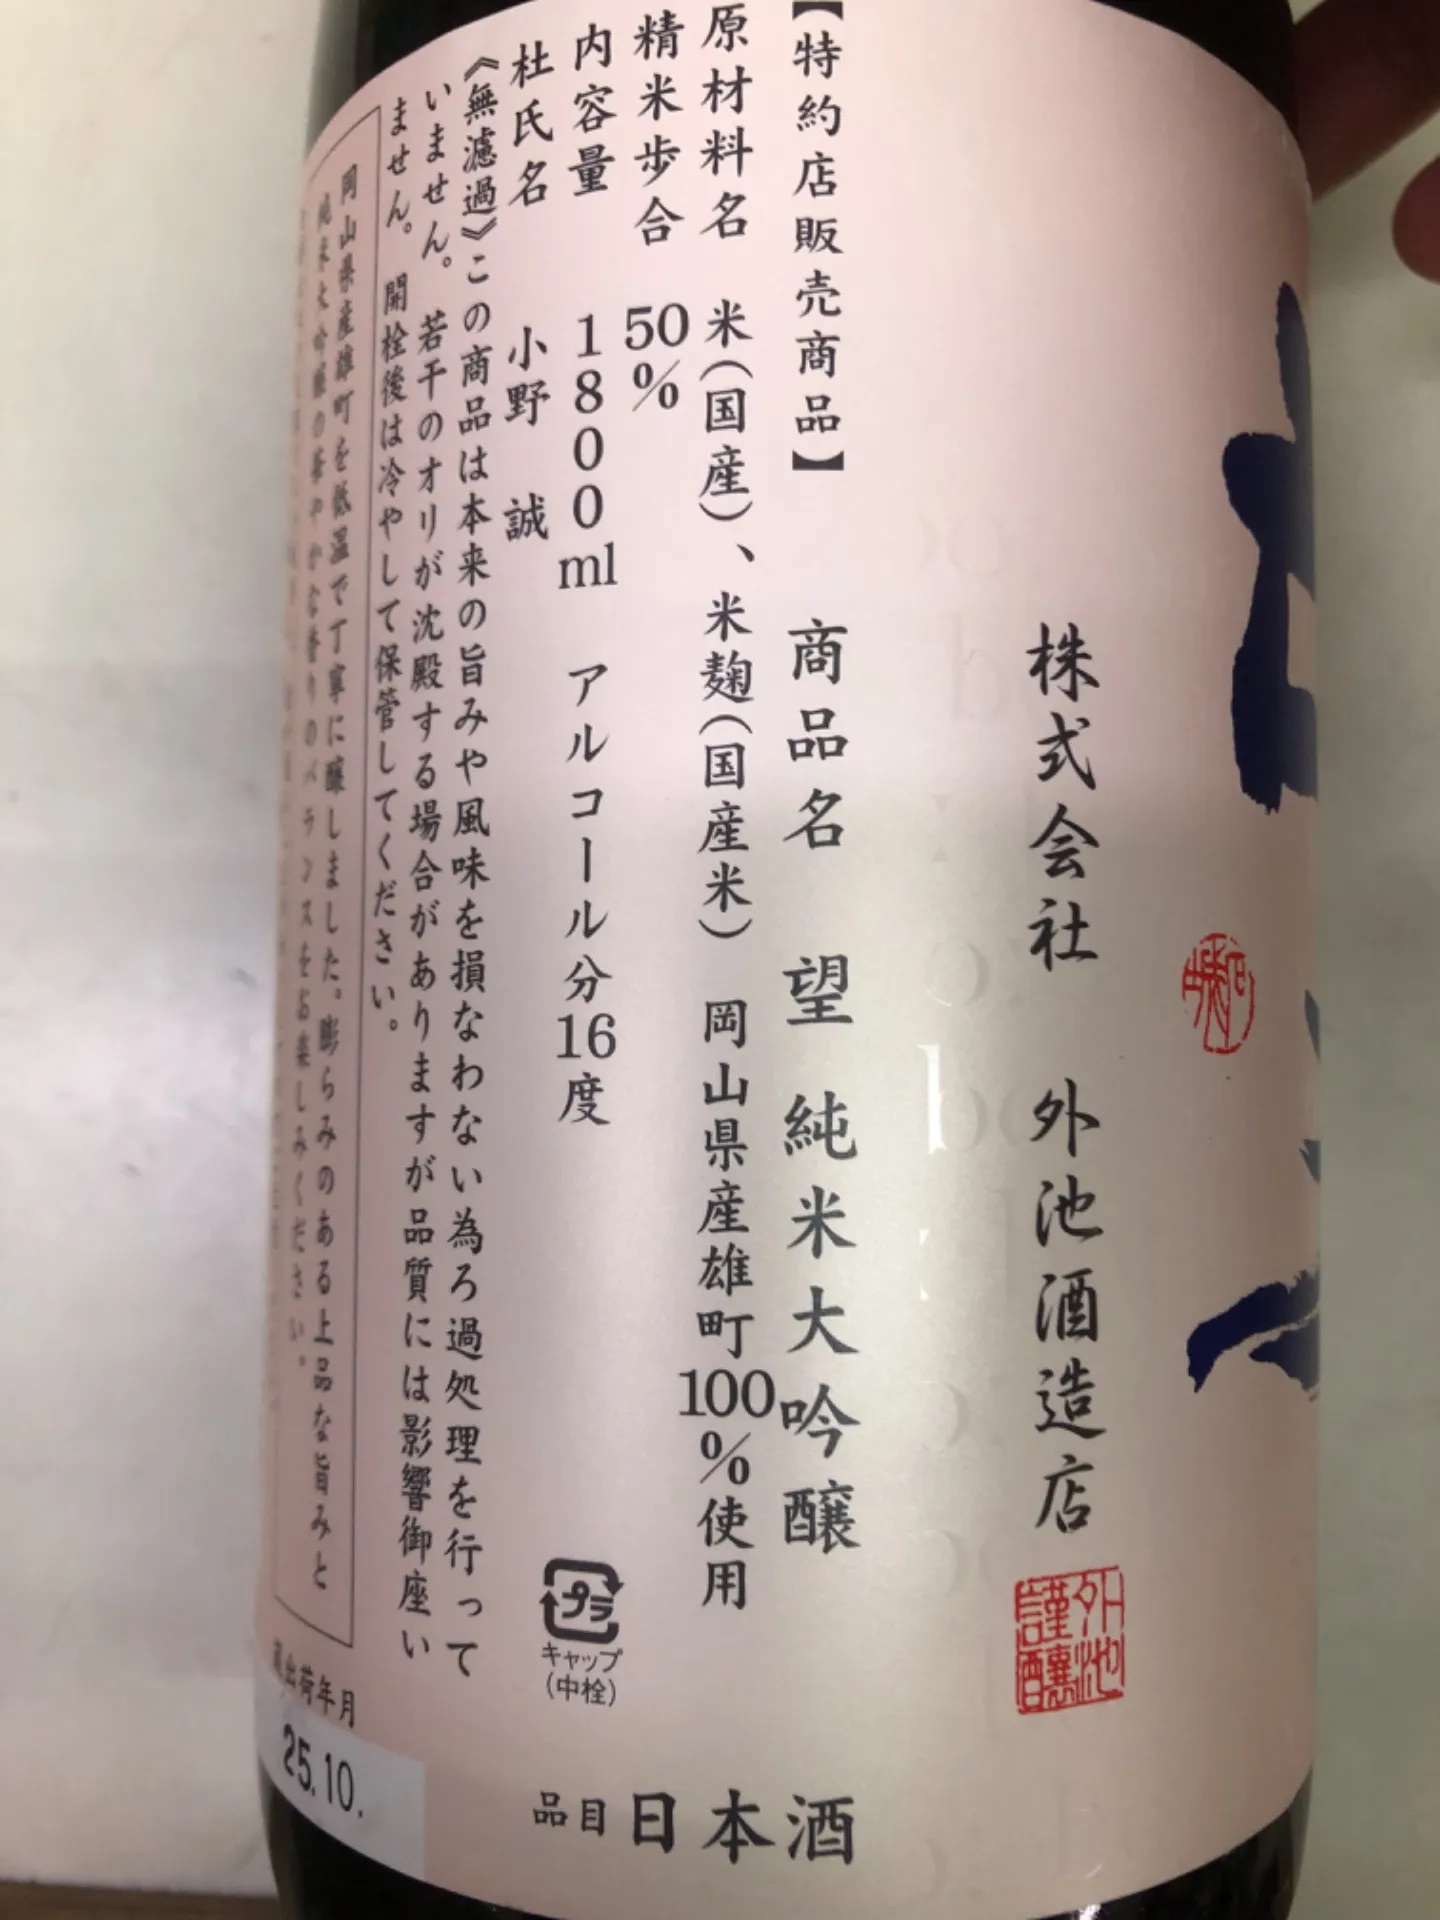 株式会社 外池酒造店
外池謹醸
【特約店販売商品】 商品名 望 純米大吟醸
原材料名 米(国産)、米麹(国産米) 岡山県産雄町100%使用
精米歩合 50%
内容量 1800ml アルコール分16度
杜氏名 小野 誠
《無濾過》この商品は本来の旨みや風味を損なわない為ろ過処理を行って
いません。若干のオリが沈殿する場合がありますが品質には影響御座い
ません。 開栓後は冷やして保管してください。
岡山県産雄町を低温で丁寧に醸しました。膨らみのある上品な旨みと
純米大吟醸の華やかな香りのバランスをお楽しみください。
プラ
キャップ
(中栓)
出荷年月
25.10.
品目 日本酒